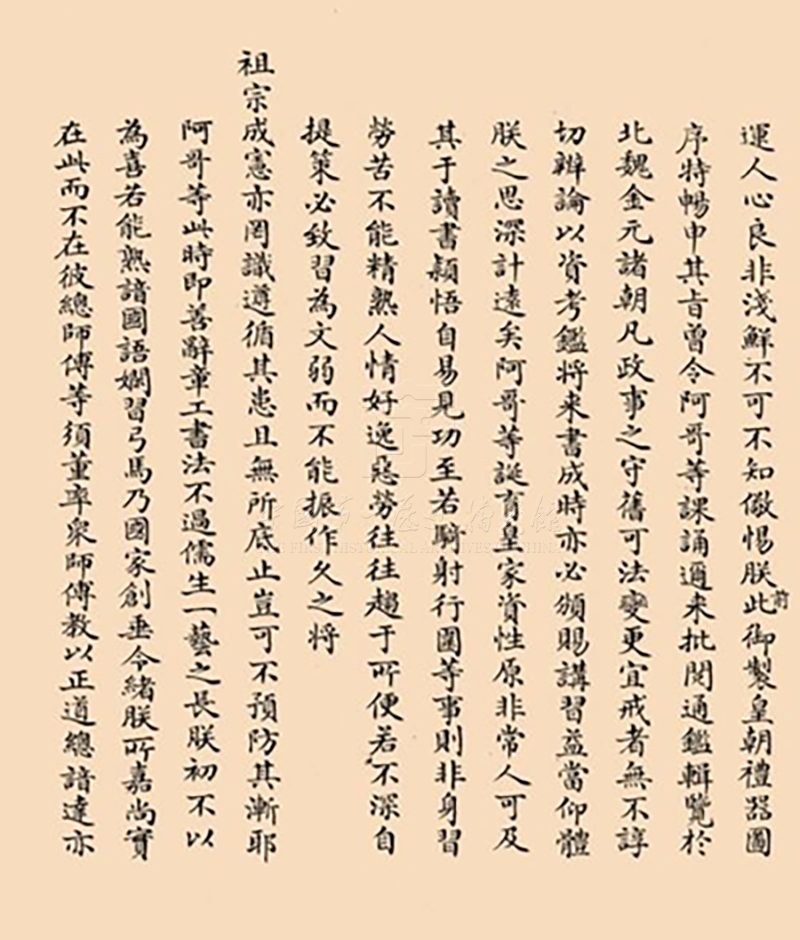 運人心良非淺鮮不可不知儆惕朕此前御製皇朝禮器圖
序特暢申其旨曾令阿哥等課誦邇来批閱通鑑輯覽於
北魏金元諸朝凡政事之守舊可法變更宜戒者無不諄
切辨論以資考鑑將来書成時亦必頒賜講習益當仰體
朕之思深計遠矣阿哥等誕育皇家資性原非常人可及
其于讀書穎悟自易見功至若騎射行圍等事則非身習
勞苦不能精熟人情好逸惡勞往往趨于所便若不深自
提策必致習為文弱而不能振作久之將
祖宗成憲亦罔識遵循其患且無所底止豈可不預防其漸耶
阿哥等此時即善辭章工書法不過儒生一藝之長朕初不以
為喜若能熟諳國語嫻習弓馬乃國家創垂令緒朕所嘉尚實
在此而不在彼總師傅等須董率衆師傅教以正道總諳達亦